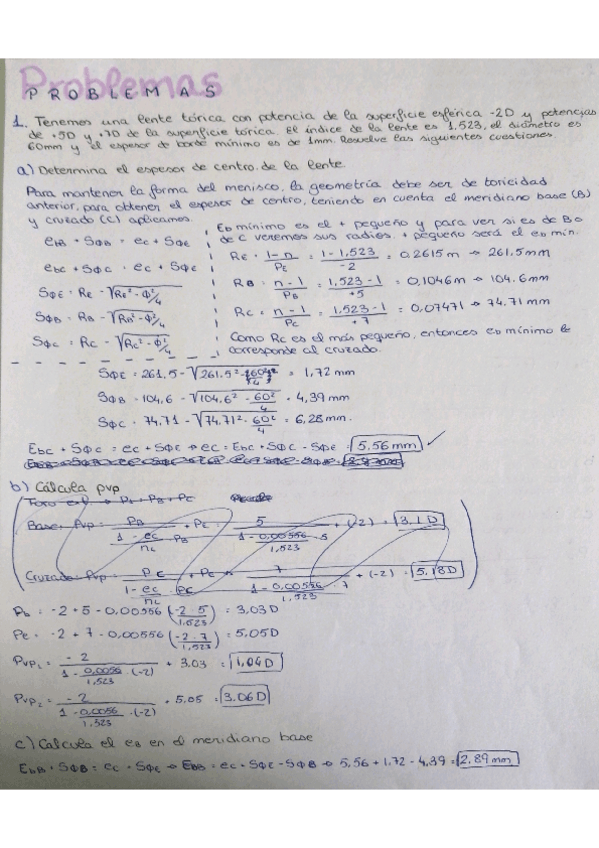 Problemas
PROBLEMAS
1. Tenemos una lente tórica con potencia de la superficie esférica -2D y potencias
de +5D y +7D de la superficie tórica. El índice de la lente es 1.523, el diámetro es
60mm y el espesor de borde mínimo es de 1mm. Resuelve las siguientes cuestiones.
a) Determina el espesor de centro de la lente.
Para mantener la forma del menisco, la geometría debe ser de toricidad
anterior, para obtener el espesor de centro, teniendo en cuenta el meridiano base (B)
y cruzado (C) aplicamos.
ebB + SΦB = ec + SΦE
ebc + SΦC = ec + SΦE
SΦE = RE - √RE² - Φ²/4
SΦB = RB - √RB² - Φ²/4
SΦC = RC - √RC² - Φ²/4
Eb mínimo es el + pequeño y para ver si es de B o
de C veremos sus radios. + pequeño será el eb mín.
RE = 1-n/PE = 1-1,523/-2 = 0,2615m → 261.5mm
RB = n-1/PB = 1,523-1/+5 = 0,1046m → 104.6mm
RC = n-1/PC = 1,523-1/+7 = 0,07471 → 74.71 mm
Como Rc es el más pequeño, entonces eb mínimo
corresponde al cruzado.
SΦE = 261,5 - √261.5² - 60²/4 = 1,72 mm
SΦB = 104,6 - √104,6² - 60²/4 = 4,39mm
SΦC = 74,71 - √74.71² - 60²/4 = 6,28mm.
Ebc + SΦC = ec + SΦE → ec = Ebc + SΦC - SΦE = 5.56 mm ✓
b) Cálcula pvp
Base → Pvp = PB / 1 - ec/nL · PB + PE = 5 / 1 - 0,00556/1,523 · 5 + (-2) = 3.1D
Cruzado → Pvp = PC / 1 - ec/nL · PC + PE = 7 / 1 - 0,00556/1,523 · 7 + (-2) = 5.18D
Pb = -2 + 5 - 0,00556 (-2·5/1,523) = 3,03D
Pc = -2 + 7 - 0,00556 (-2·7/1,523) = 5,05D
Pvp1 = -2 / 1 - 0,0056/1,523 · (-2) + 3.03 = 1,04D
Pvp2 = -2 / 1 - 0,0056/1,523 · (-2) + 5,05 = 3.06D
c) Calcula el eB en el meridiano base
EbB + SΦB = ec + SΦE → EbB = ec + SΦE - SΦB → 5,56 + 1,72 - 4,39 = 2,89 mm